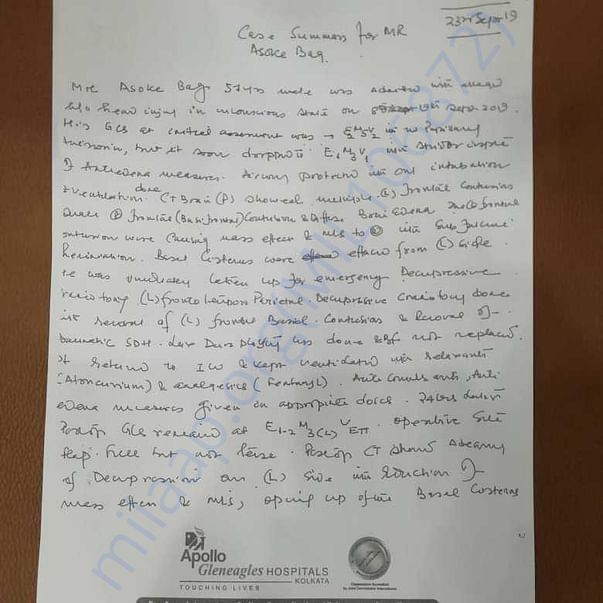 23rd Sept 19
Case Summary for MR
Asoke Bag.
Mr Asoke Bag 57 yrs male was admitted with alleged
h/o head injury in unconscious state on Sept. 2019.
His GCS at initial assessment was → E2M5V2 no
but it soon dropped to E1M3V1 with stridor inspite
of Antiedema measures. Airway protected with oral intubation
& ventilation. CT Brain (P) done showed multiple (L) frontal contusions
(R) frontal (Basi frontal) Contusion & diffuse Brain edema. The (L) frontal
contusion were causing mass effect & MLS to with Sub falcine
herniation. Basal Cisterns were effaced from (L) side.
He was immediately taken up for emergency Decompressive
(L) fronto Parietal. Decompressive Craniotomy done
with removal of (L) frontal Basal Contusions & Removal of
traumatic SDH. Lax Duroplasty was done & BF not replaced.
Pt returned to & kept ventilated with relaxants
(Atracurium) & analgesics (Fentanyl). Anti convulsants, Anti
edema measures given in appropriate doses. 24hrs
Postop GCS remained at E1-2 M3(L) VETT. operative site
flap. Full but not tense. Postop CT showed
of Decompression on (L) side with reduction of
mass effect & MLS, opening up of the Basal Cisterns
milaap.org
Apollo
Gleneagles HOSPITALS
KOLKATA
TOUCHING LIVES